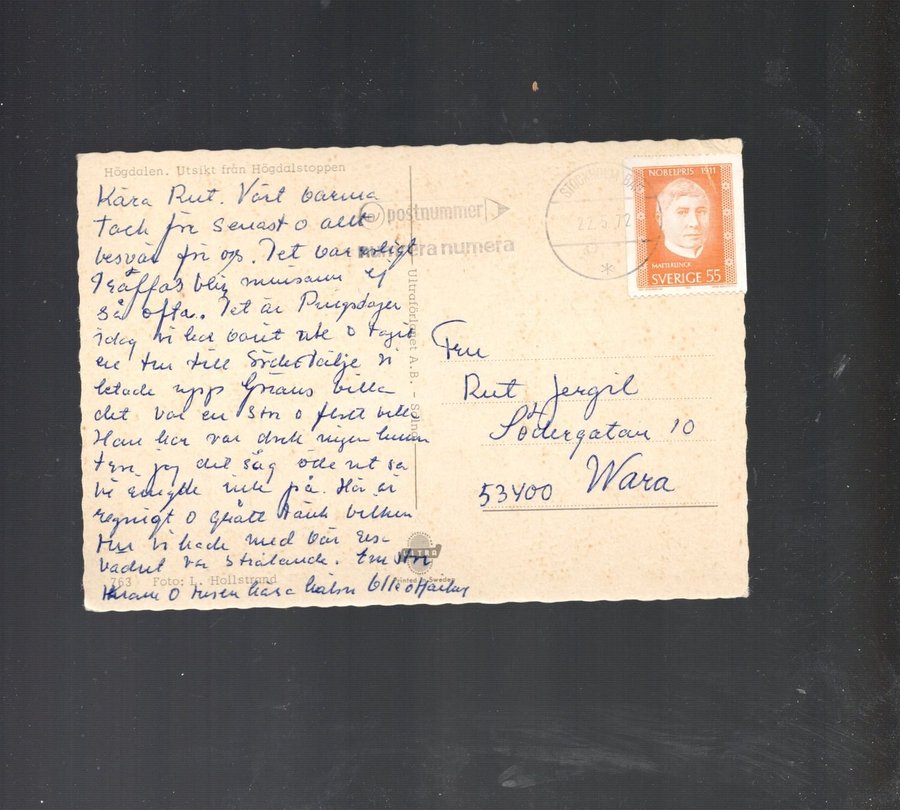 Högdalen. Utsikt från Högdalstoppen
Kära Rut. Vårt varma
tack för senast o allt
besvär för oss. Det var roligt
träffas blir minsann ej
så ofta. Det är Pingstdagen
idag vi har varit ute o tagit
en tur till Södertälje vi
letade upp villa
det var en stor o villa
Han har var dock ingen hemma
tror jag det såg öde ut så
vi ringde inte på. Här är
regnigt o grått tänk vilken
tur vi hade med vår resa
vädret var strålande. En stor
kram o tusen kära hälsn Olle o
763 Foto: L. Hollstrand
Ultraförlaget A.B. - Solna
ULTRA
Printed in Sweden
postnummer
numera numera
STOCKHOLM BAN
22.5.72
NOBELPRIS 1911
MAETERLINCK
SVERIGE 55
Fru
Rut Jergil
Södergatan 10
53400 Wara